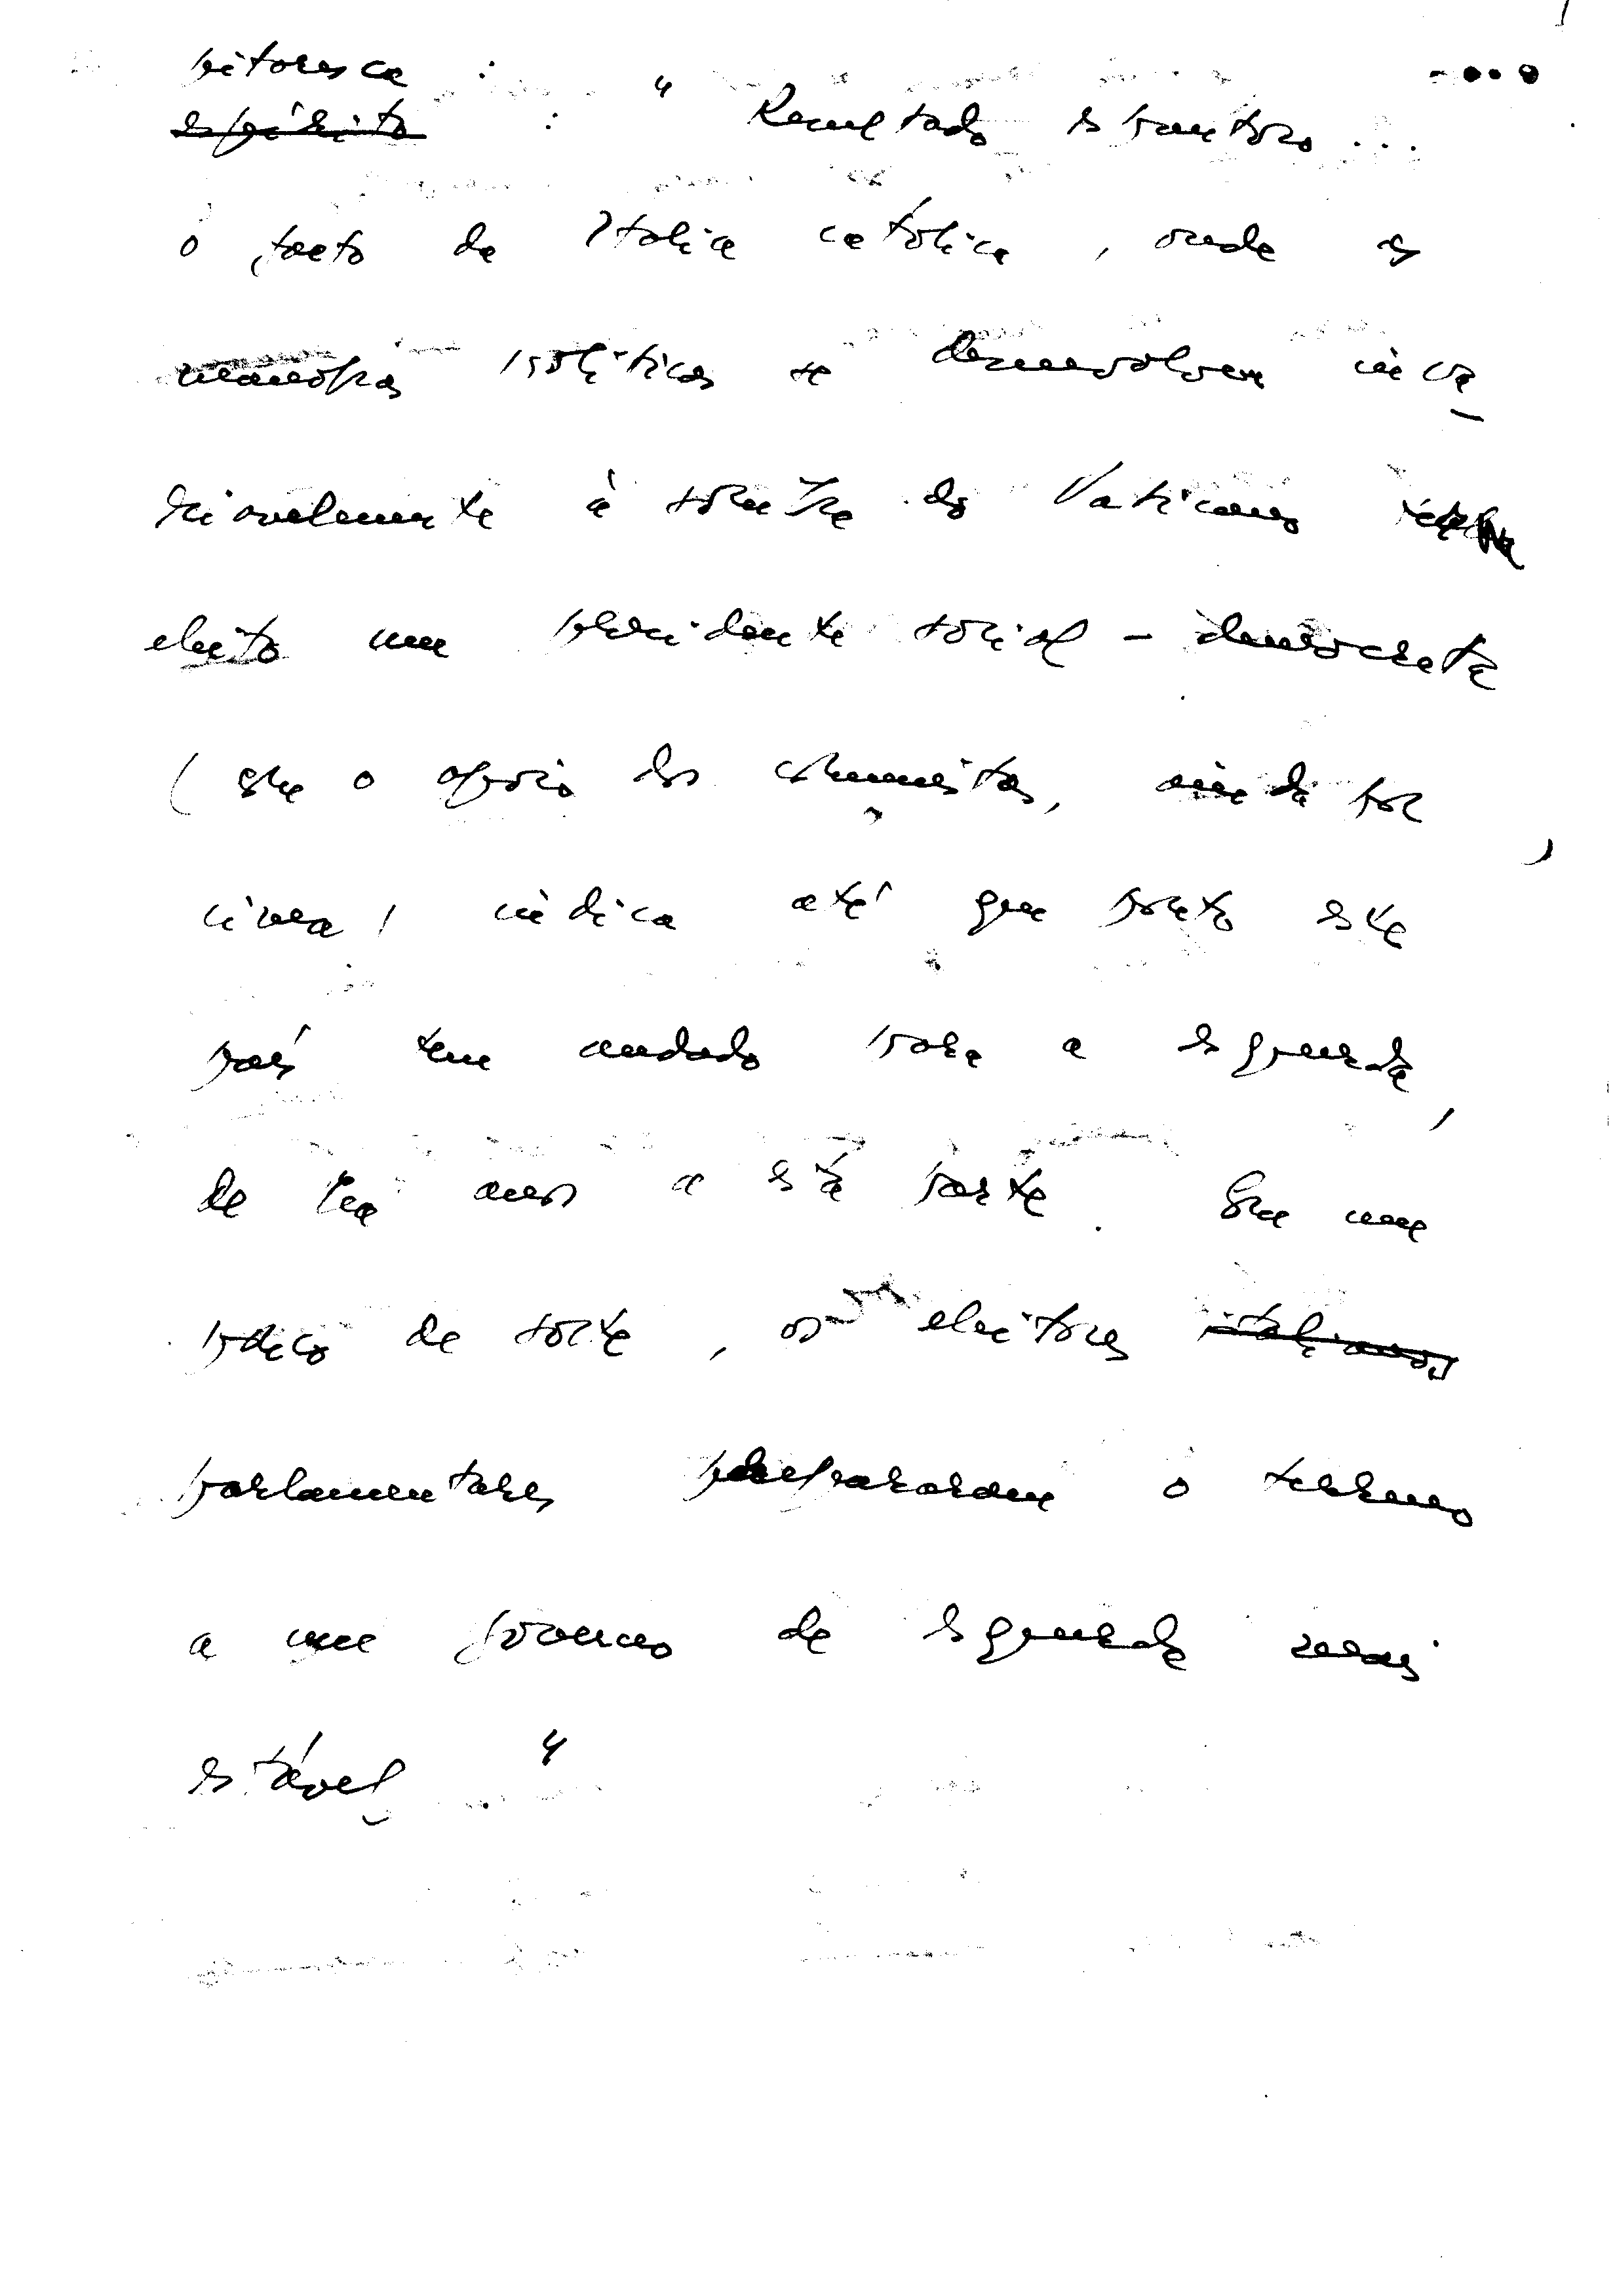 pitoresca :
espírito : " Resultado espantoso ...
o facto da Itália católica, onde as
manobras políticas se desenvolvem inva-
riavelmente à sombra do Vaticano, ter
eleito um presidente social-democrata
(com o apoio dos comunistas, ainda por
cima) indica até que ponto este
país tem andado para a esquerda,
de há anos a esta parte. Em uma
de sorte, os eleitores italianos
parlamentares prepararam o terreno
a um governo de esquerda mais
estável "